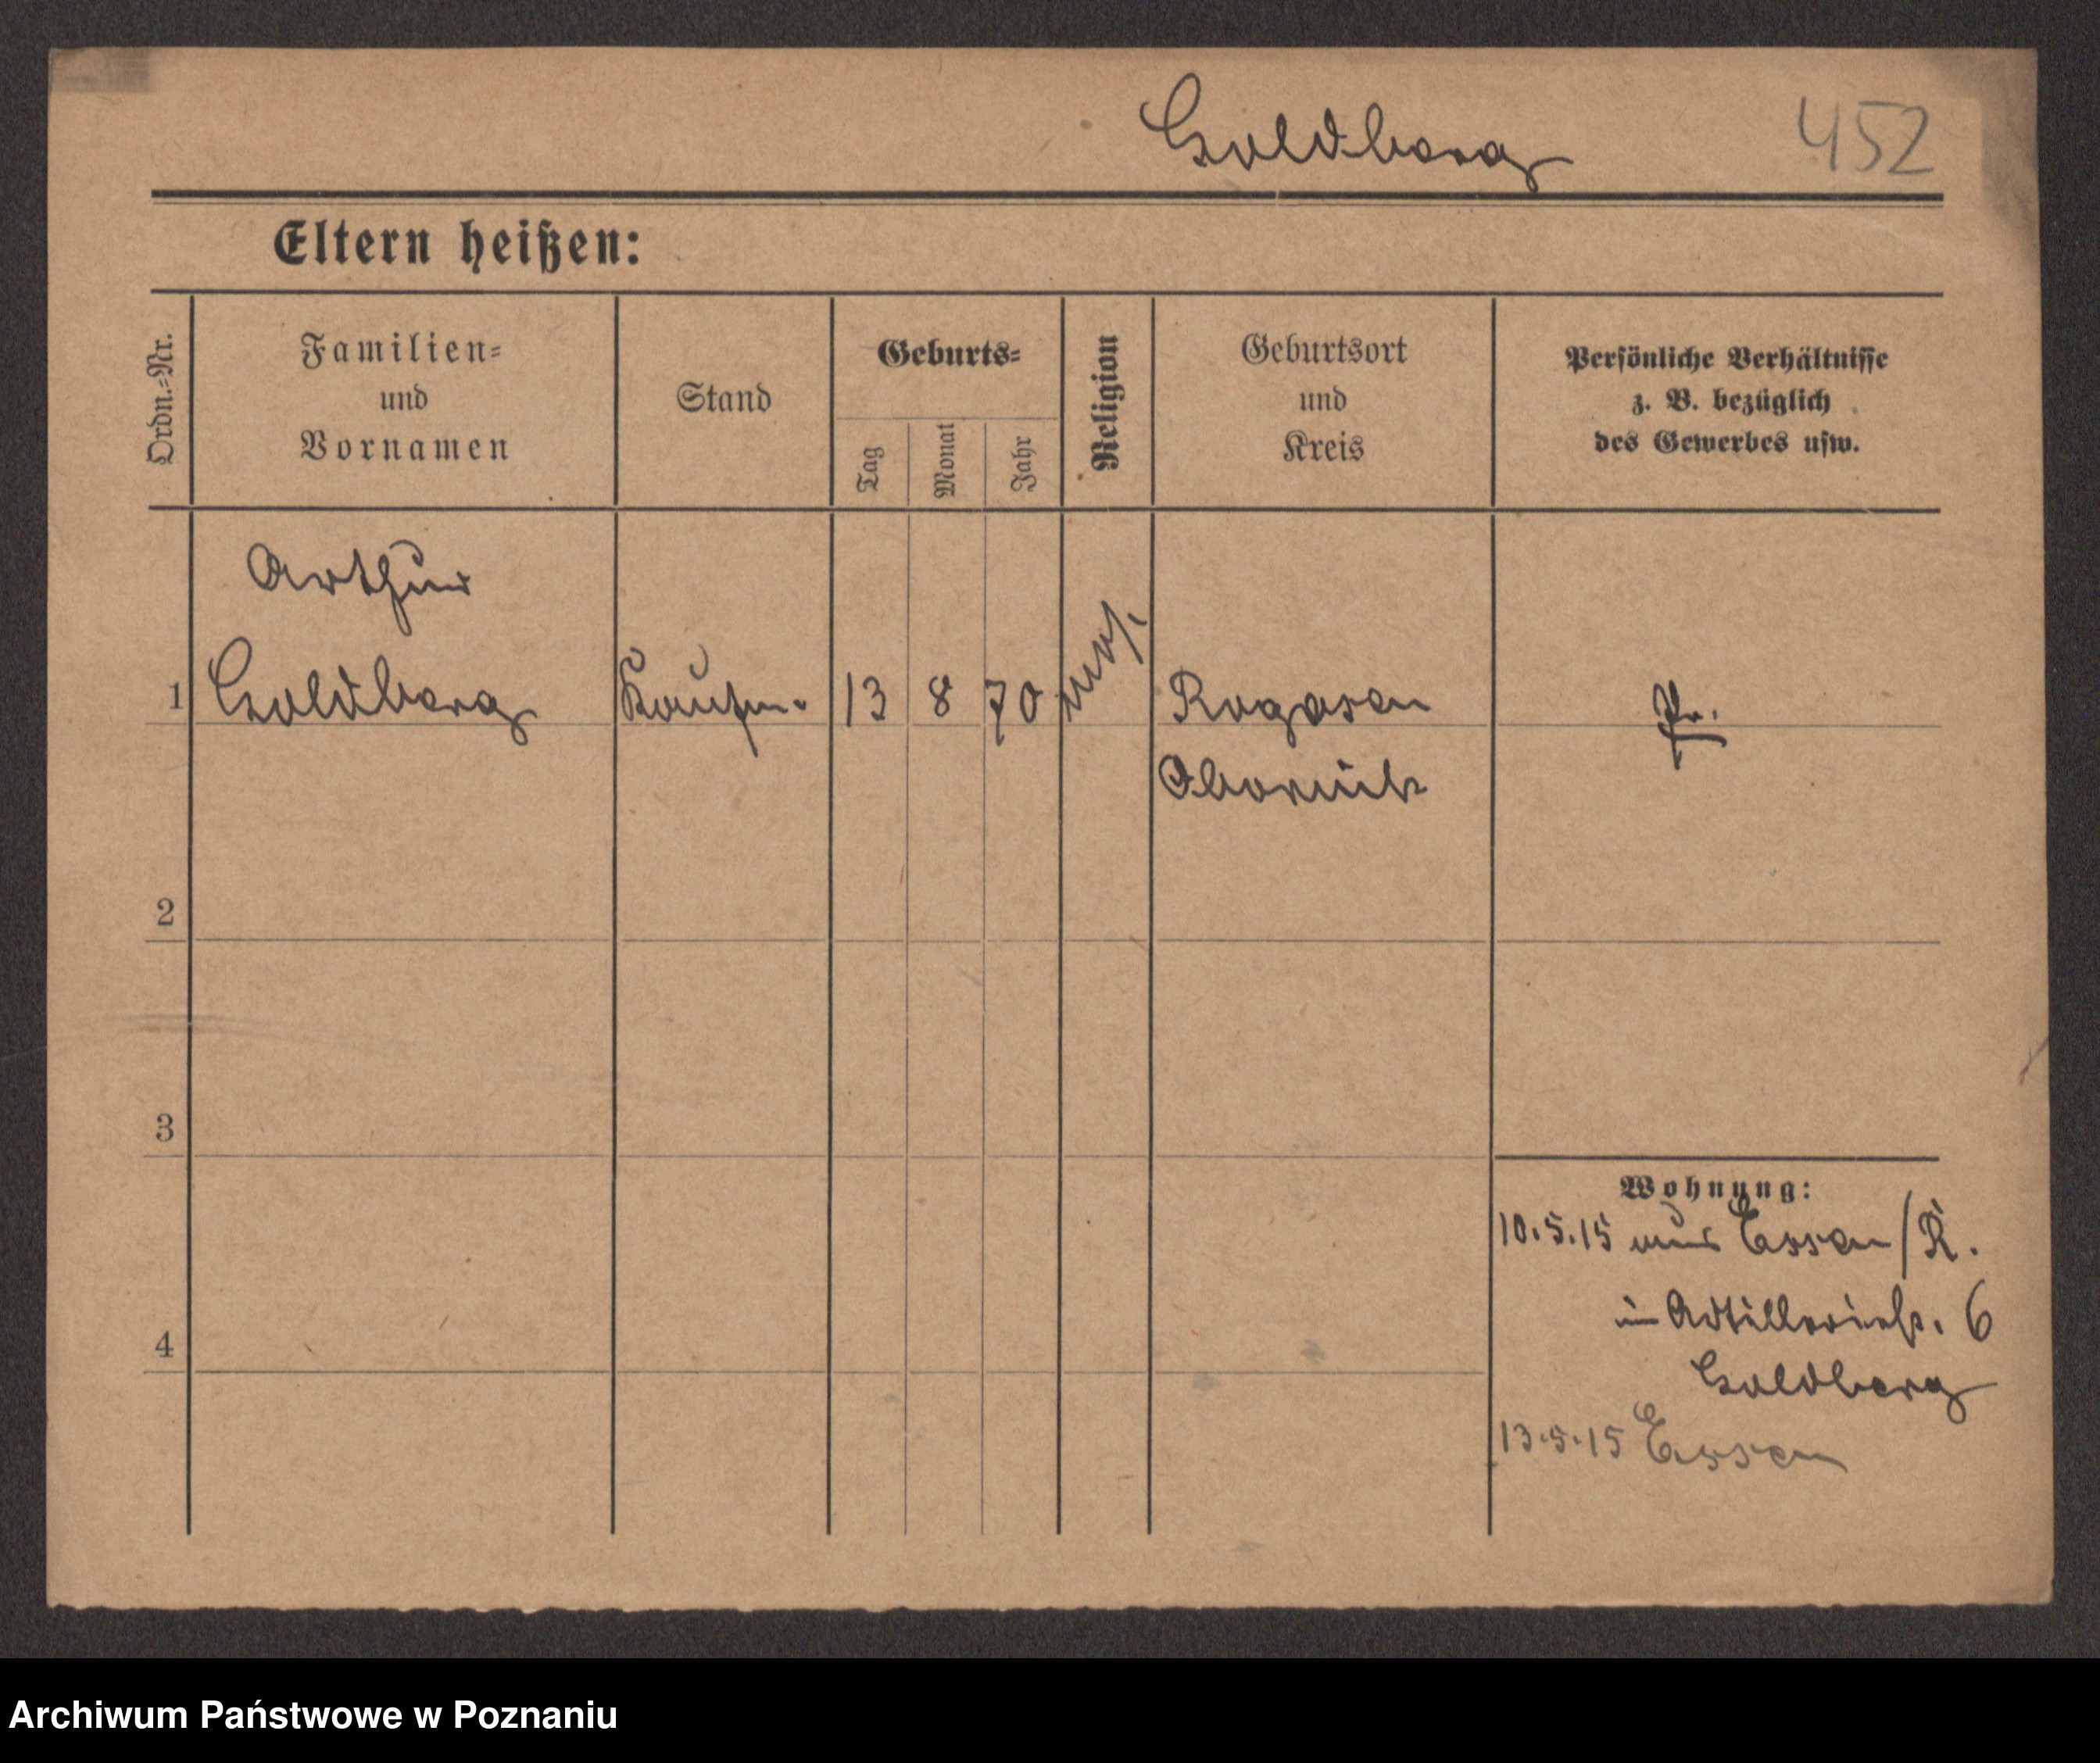 Goldberg 452
Eltern heißen:
Ordn.-Nr.
Familien-
und
Vornamen
Stand
Geburts-
Tag
Monat
Jahr
Religion
Geburtsort
und
Kreis
Persönliche Verhältnisse
z. B. bezüglich
des Gewerbes usw.
Arthur
1 Goldberg Kaufm. 13 8 70 mos. Rogasen Pr.
Obornick
2
3
4
Wohnung:
10.5.15 aus Essen/R.
in Artilleriestr. 6
Goldberg
13.5.15 Essen
Archiwum Państwowe w Poznaniu